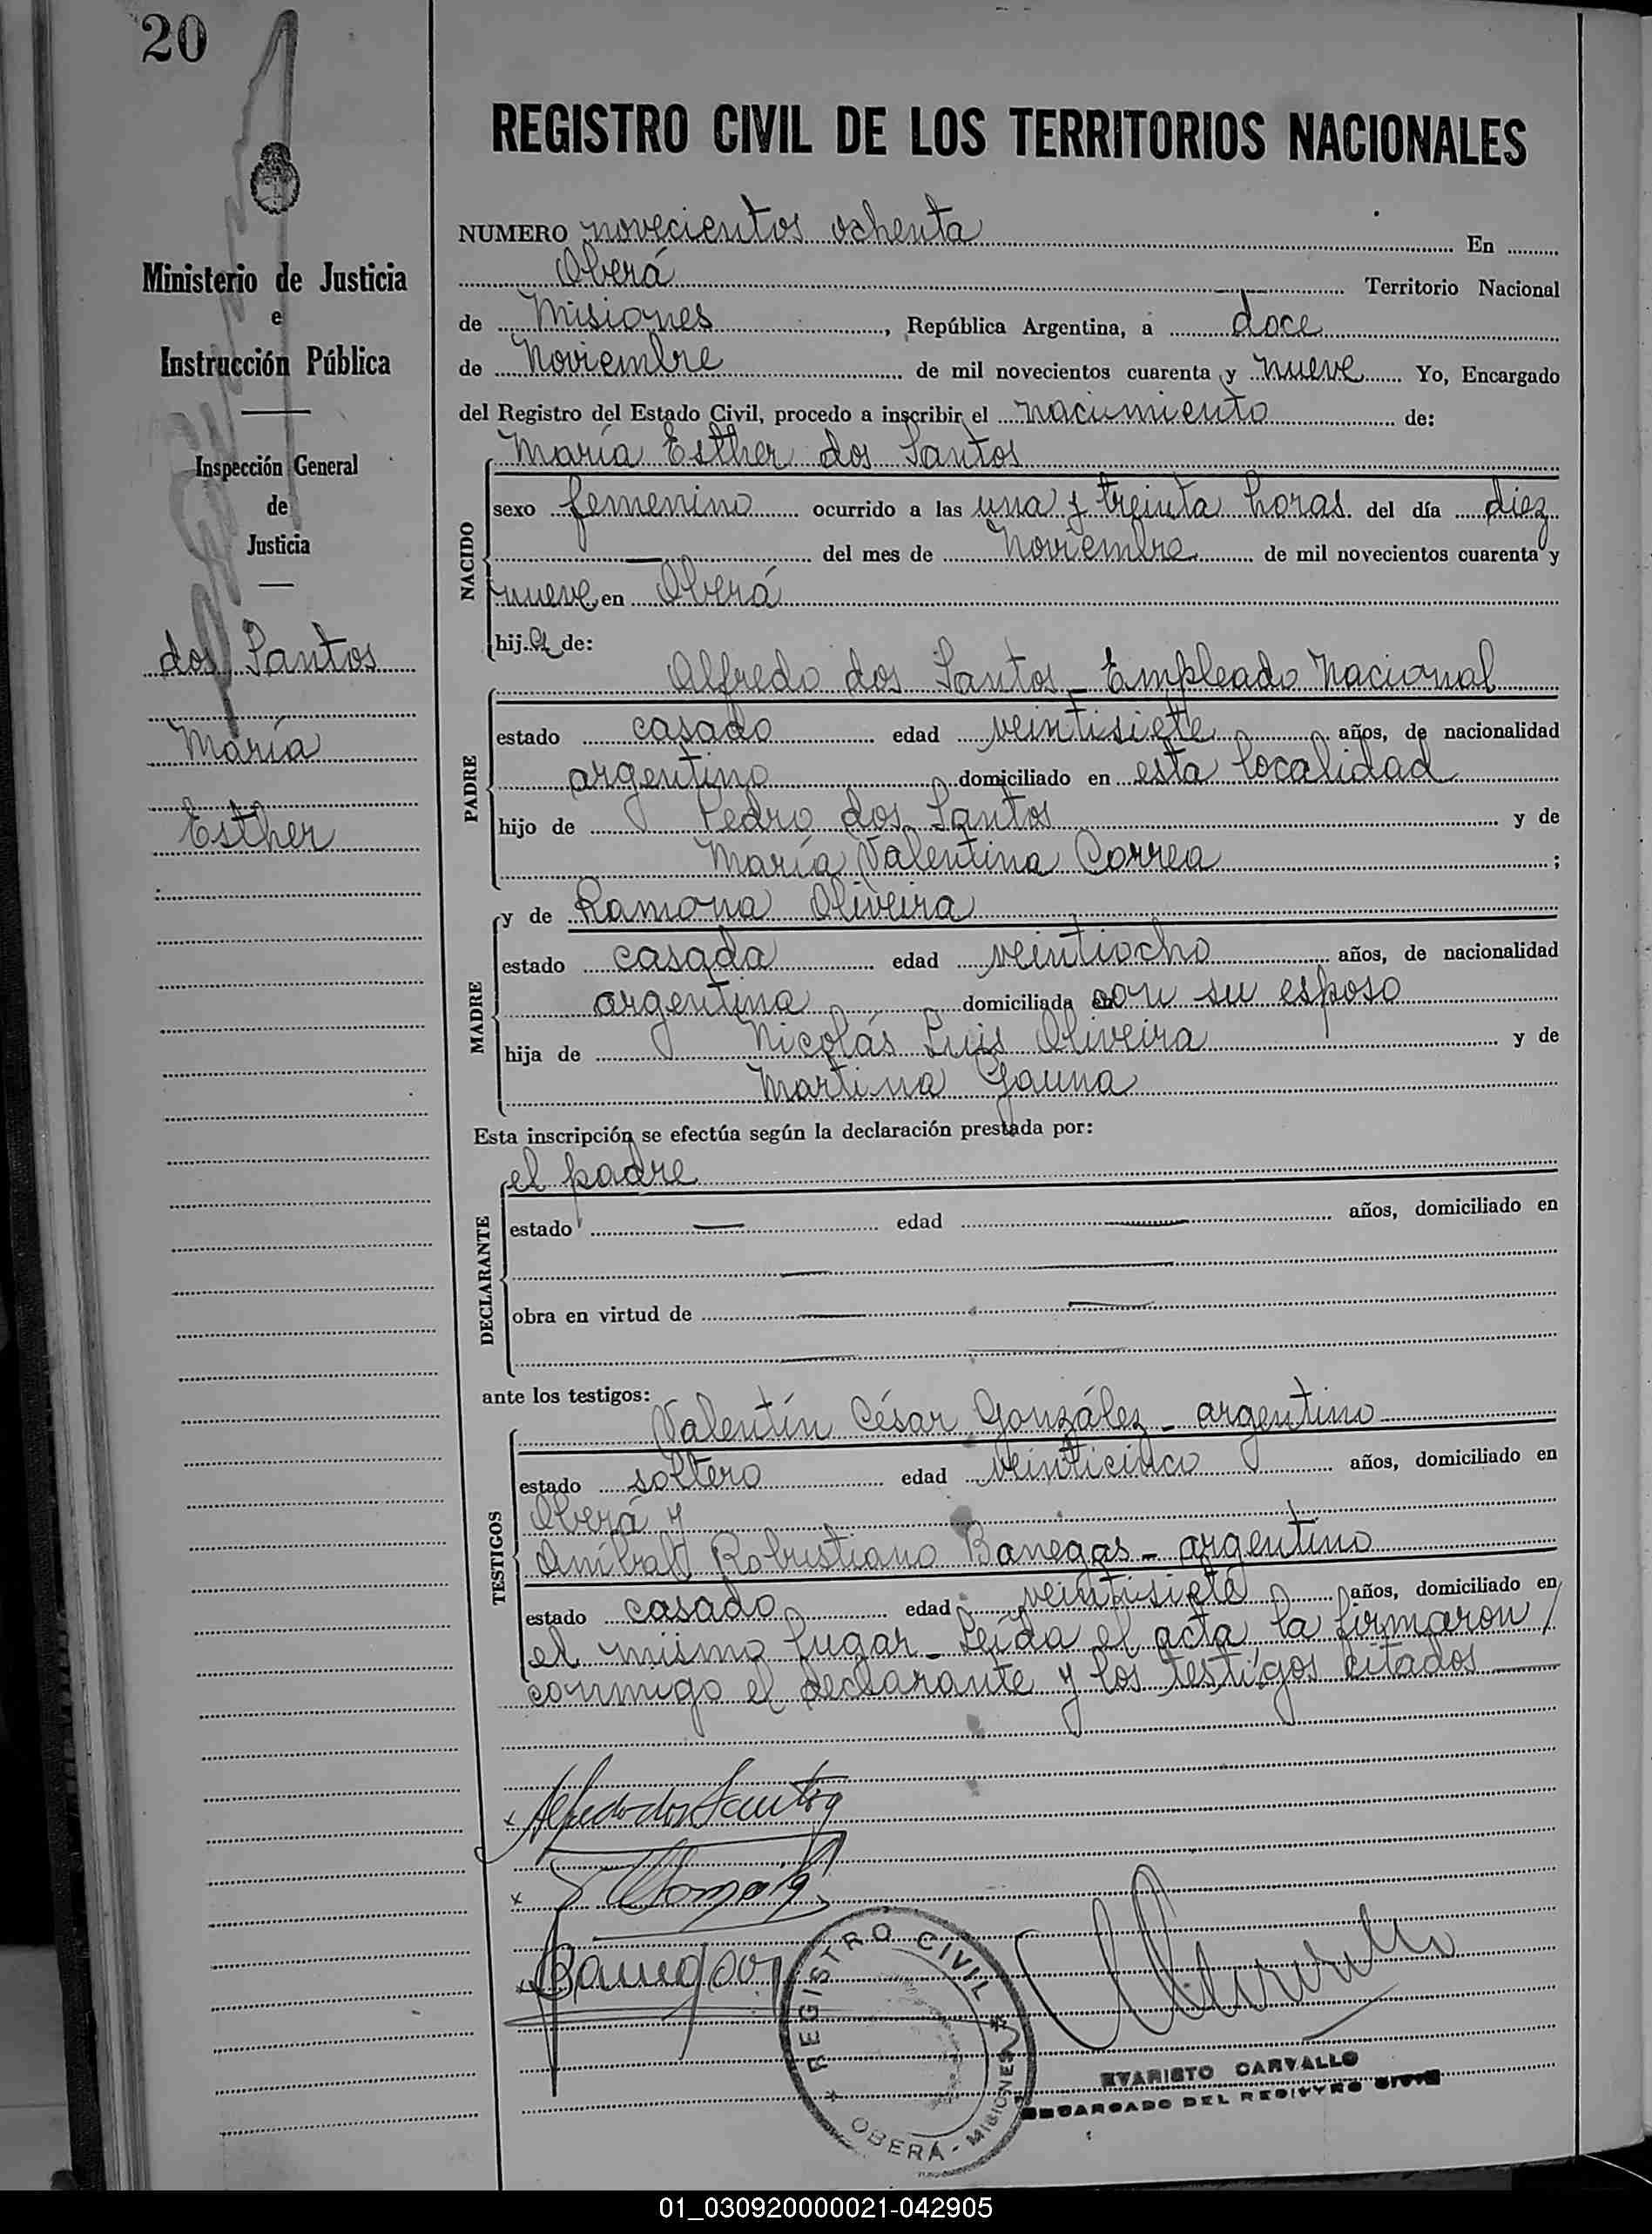 20
REGISTRO CIVIL DE LOS TERRITORIOS NACIONALES
Ministerio de Justicia
e
Instrucción Pública
Inspección General
de
Justicia
dos Santos
María
Esther
NUMERO novecientos ochenta En
Oberá Territorio Nacional
de Misiones, República Argentina, a doce
de Noviembre de mil novecientos cuarenta y nueve Yo, Encargado
del Registro del Estado Civil, procedo a inscribir el nacimiento de:
María Esther dos Santos
NACIDO
sexo femenino ocurrido a las una y treinta horas del día diez
del mes de Noviembre de mil novecientos cuarenta y
nueve en Oberá
hij a de:
PADRE
Alfredo dos Santos - Empleado Nacional
estado casado edad veintisiete años, de nacionalidad
argentino domiciliado en esta localidad
hijo de Pedro dos Santos y de
María Valentina Correa ;
MADRE
y de Ramona Oliveira
estado casada edad veintiocho años, de nacionalidad
argentina domiciliada con su esposo
hija de Nicolás Luis Oliveira y de
Martina Gauna
Esta inscripción se efectúa según la declaración prestada por:
DECLARANTE
el padre
estado — edad — años, domiciliado en
obra en virtud de —
ante los testigos:
TESTIGOS
Valentín César González - argentino
estado soltero edad veinticinco años, domiciliado en
Oberá y
Aníbal Robustiano Banegas - argentino
estado casado edad veintisiete años, domiciliado en
el mismo lugar - Leída el acta la firmaron /
conmigo el declarante y los testigos citados
Alfredo dos Santos
Banegas
REGISTRO CIVIL
OBERÁ - MISIONES
EVARISTO CARVALLO
ENCARGADO DEL REGISTRO CIVIL
01_030920000021-042905